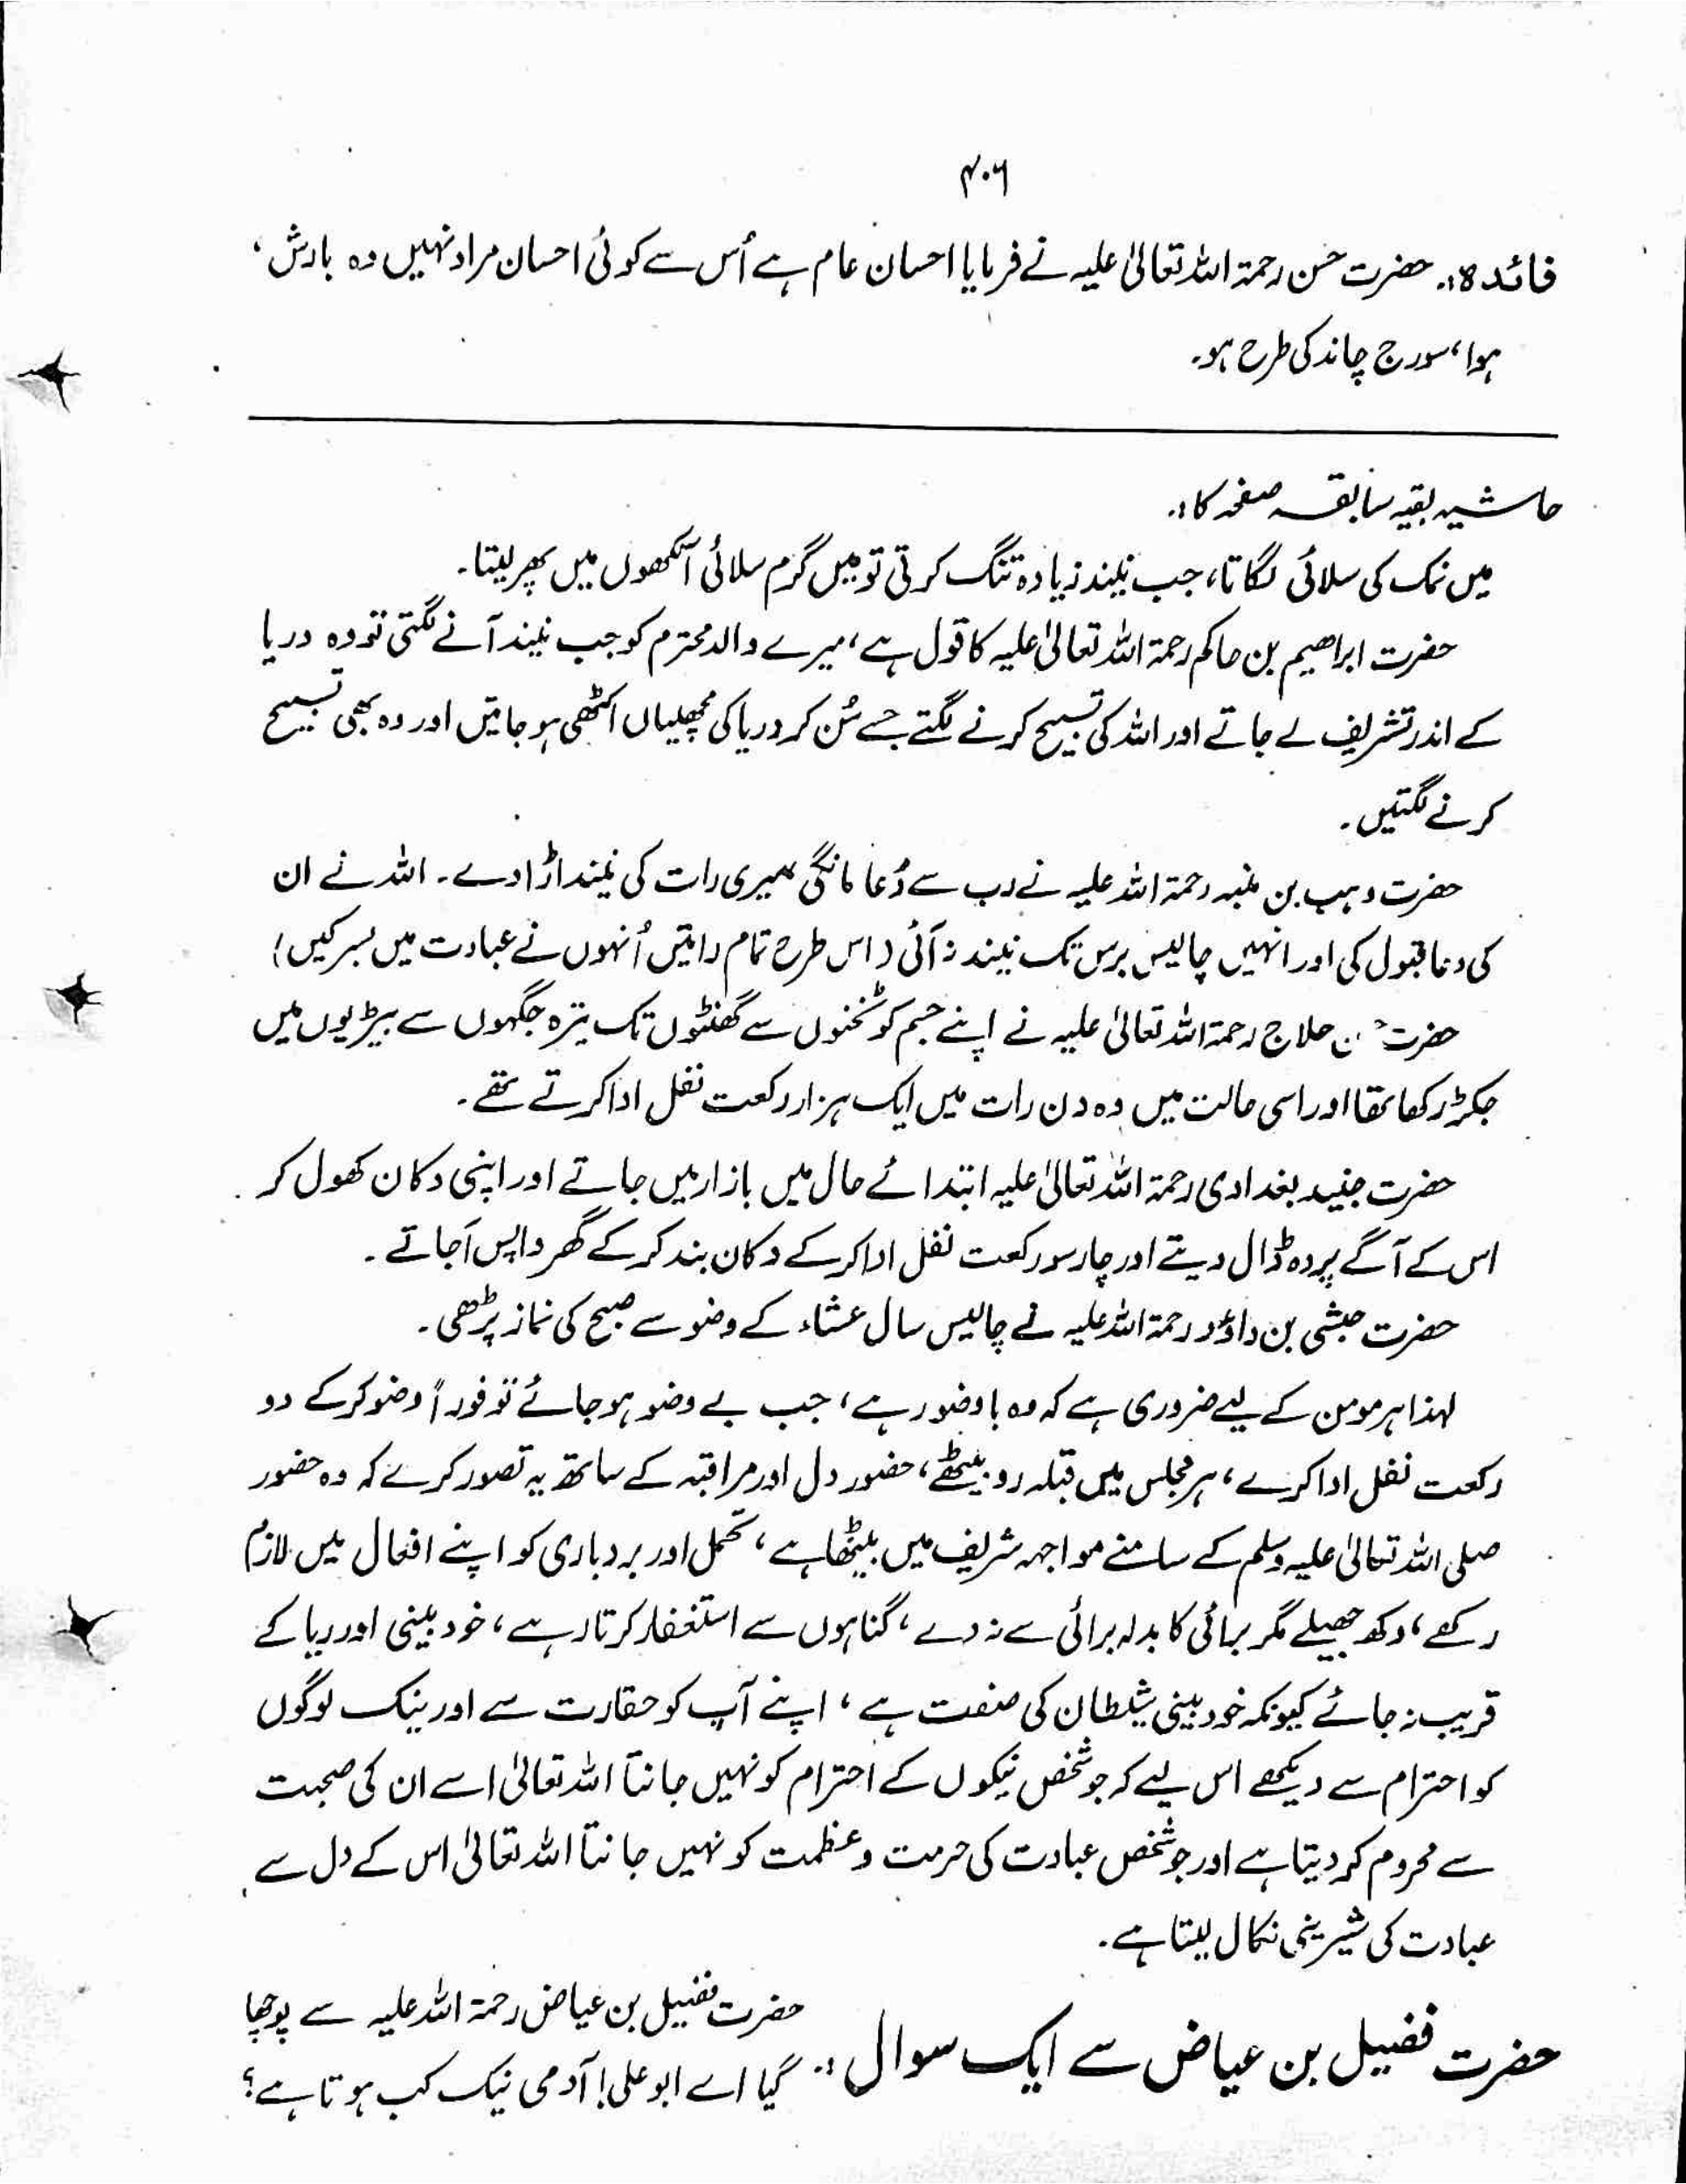 ۴۰۶
فائدہ:۔ حضرت حسن رحمۃ اللہ تعالیٰ علیہ نے فرمایا احسان عام ہے اُس سے کوئی احسان مراد نہیں وہ بارش،
ہوا، سورج چاند کی طرح ہو۔
حاشیہ بقیہ سابقہ صفحہ کا:۔
میں نمک کی سلائی لگاتا، جب نیند زیادہ تنگ کرتی تو میں گرم سلائی آنکھوں میں پھر لیتا۔
حضرت ابراھیم بن حاکم رحمۃ اللہ تعالیٰ علیہ کا قول ہے، میرے والد محترم کو جب نیند آنے لگتی تو وہ دریا
کے اندر تشریف لے جاتے اور اللہ کی تسبیح کرنے لگتے جسے سُن کر دریا کی مچھلیاں اکٹھی ہو جاتیں اور وہ بھی تسبیح
کرنے لگتیں۔
حضرت وہب بن منبہ رحمۃ اللہ علیہ نے رب سے دُعا مانگی میری رات کی نیند اڑا دے۔ اللہ نے ان
کی دعا قبول کی اور انہیں چالیس برس تک نیند نہ آئی (اس طرح تمام راتیں اُنہوں نے عبادت میں بسر کیں)
حضرت حلاج رحمۃ اللہ تعالیٰ علیہ نے اپنے جسم کو ٹخنوں سے گھنٹوں تک تیرہ جگہوں سے بیڑیوں میں
جکڑ رکھا تھا اور اسی حالت میں وہ دن رات میں ایک ہزار رکعت نفل ادا کرتے تھے۔
حضرت جنید بغدادی رحمۃ اللہ تعالیٰ علیہ ابتدائے حال میں بازار میں جاتے اور اپنی دکان کھول کر
اس کے آگے پردہ ڈال دیتے اور چار سو رکعت نفل ادا کر کے دکان بند کر کے گھر واپس آجاتے۔
حضرت حبشی بن داؤد رحمۃ اللہ علیہ نے چالیس سال عشاء کے وضو سے صبح کی نماز پڑھی۔
لہذا ہر مومن کے لیے ضروری ہے کہ وہ باوضو رہے، جب بے وضو ہو جائے تو فوراً وضو کر کے دو
رکعت نفل ادا کرے، ہر مجلس میں قبلہ رو بیٹھے، حضور دل اور مراقبہ کے ساتھ یہ تصور کرے کہ وہ حضور
صلی اللہ تعالیٰ علیہ وسلم کے سامنے مواجہہ شریف میں بیٹھا ہے، تحمل اور بردباری کو اپنے افعال میں لازم
رکھے، دکھ جھیلے مگر برائی کا بدلہ برائی سے نہ دے، گناہوں سے استغفار کرتا رہے، خود بینی اور ریا کے
قریب نہ جائے کیونکہ خود بینی شیطان کی صفت ہے، اپنے آپ کو حقارت سے اور نیک لوگوں
کو احترام سے دیکھے اس لیے کہ جو شخص نیکوں کے احترام کو نہیں جانتا اللہ تعالیٰ اسے ان کی صحبت
سے محروم کر دیتا ہے اور جو شخص عبادت کی حرمت و عظمت کو نہیں جانتا اللہ تعالیٰ اس کے دل سے
عبادت کی شیرینی نکال لیتا ہے۔
حضرت فضیل بن عیاض سے ایک سوال:۔ حضرت فضیل بن عیاض رحمۃ اللہ علیہ سے پوچھا
گیا اے ابو علی! آدمی نیک کب ہوتا ہے؟